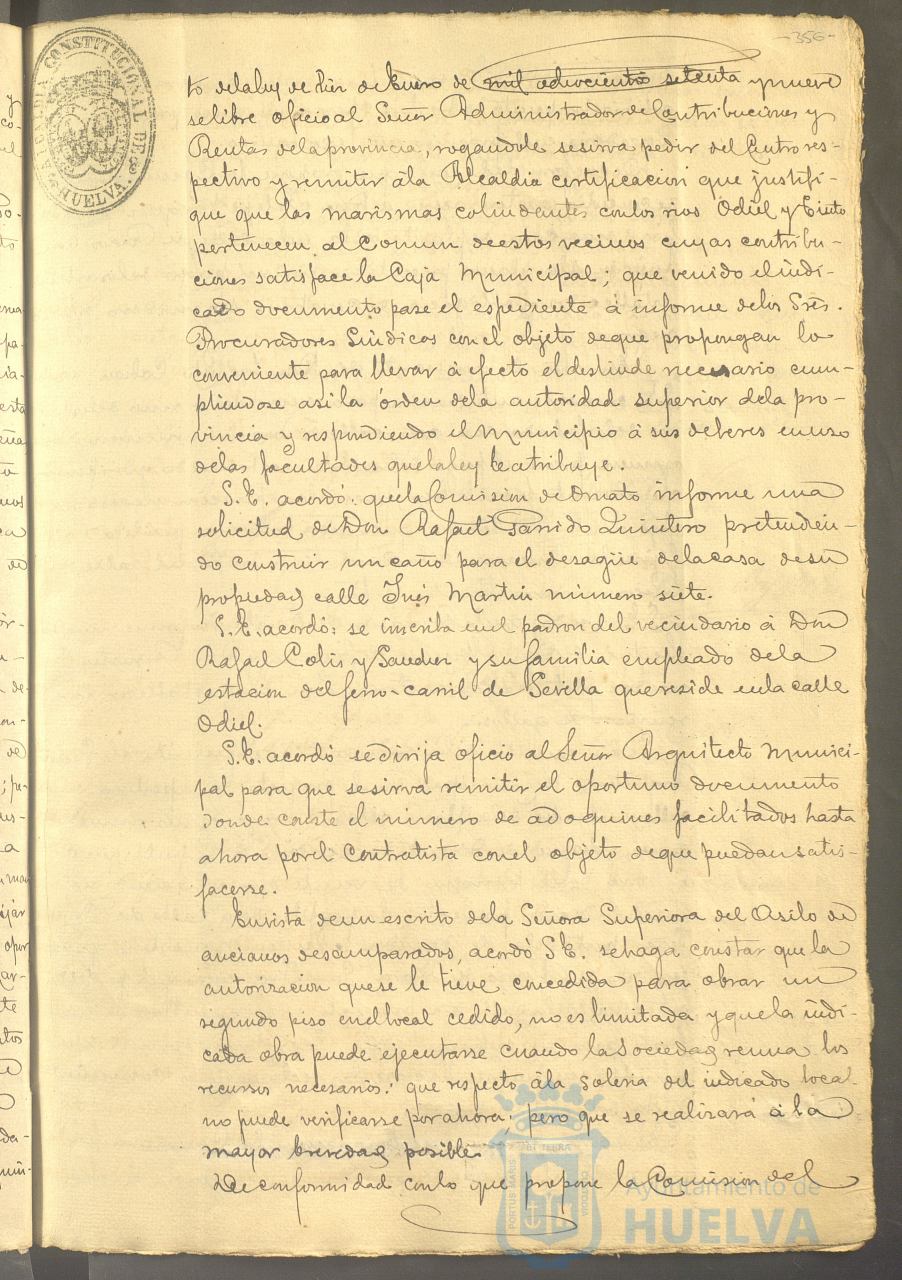 -356-
ALCALDIA CONSTITUCIONAL DE HUELVA
to de la ley de diez de Enero de mil ochocientos setenta y nueve
se libre oficio al Señor Administrador de Contribuciones y
Rentas de la provincia, rogandole se sirva pedir del Centro res-
pectivo y remitir á la Alcaldia certificacion que justifi-
que que las marismas colindantes con los rios Odiel y Tinto
pertenecen al Comun de estos vecinos cuyas contribu-
ciones satisface la Caja Municipal; que venido el indi-
cado documento pase el espediente á informe de los Sres.
Procuradores Síndicos con el objeto de que propongan lo
conveniente para llevar á efecto el deslinde necesario cum-
pliendose asi la órden de la autoridad superior de la pro-
vincia y respondiendo el Municipio á sus deberes en uso
de las facultades que la ley le atribuye.
S. E. acordó: que la Comision de Ornato informe una
solicitud de Don Rafael Garrido Quintero pretendien-
do construir un caño para el desagüe de la casa de su
propiedad calle Inés Martin número siete.
S. E. acordó: se inscriba en el padron del vecindario á Don
Rafael Colis y y su familia empleado de la
estacion del ferro-carril de Sevilla que reside en la calle
Odiel.
S. E. acordó se dirija oficio al Señor Arquitecto Munici-
pal para que se sirva remitir el oportuno documento
donde conste el número de adoquines facilitados hasta
ahora por el Contratista con el objeto de que puedan satis-
facerse.
En vista de un escrito de la Señora Superiora del Asilo de
ancianos desamparados, acordó S. E. se haga constar que la
autorizacion que se le tiene concedida para obrar un
segundo piso en el local cedido, no es limitada y que la indi-
cada obra puede ejecutarse cuando la Sociedad reuna los
recursos necesarios: que respecto á la soleria del indicado local
no puede verificarse por ahora; pero que se realizará á la
mayor brevedad posible.
De conformidad con lo que propone la Comision del
PORTUS MARIS ET TERRÆ CUSTODIA
Ayuntamiento de
HUELVA